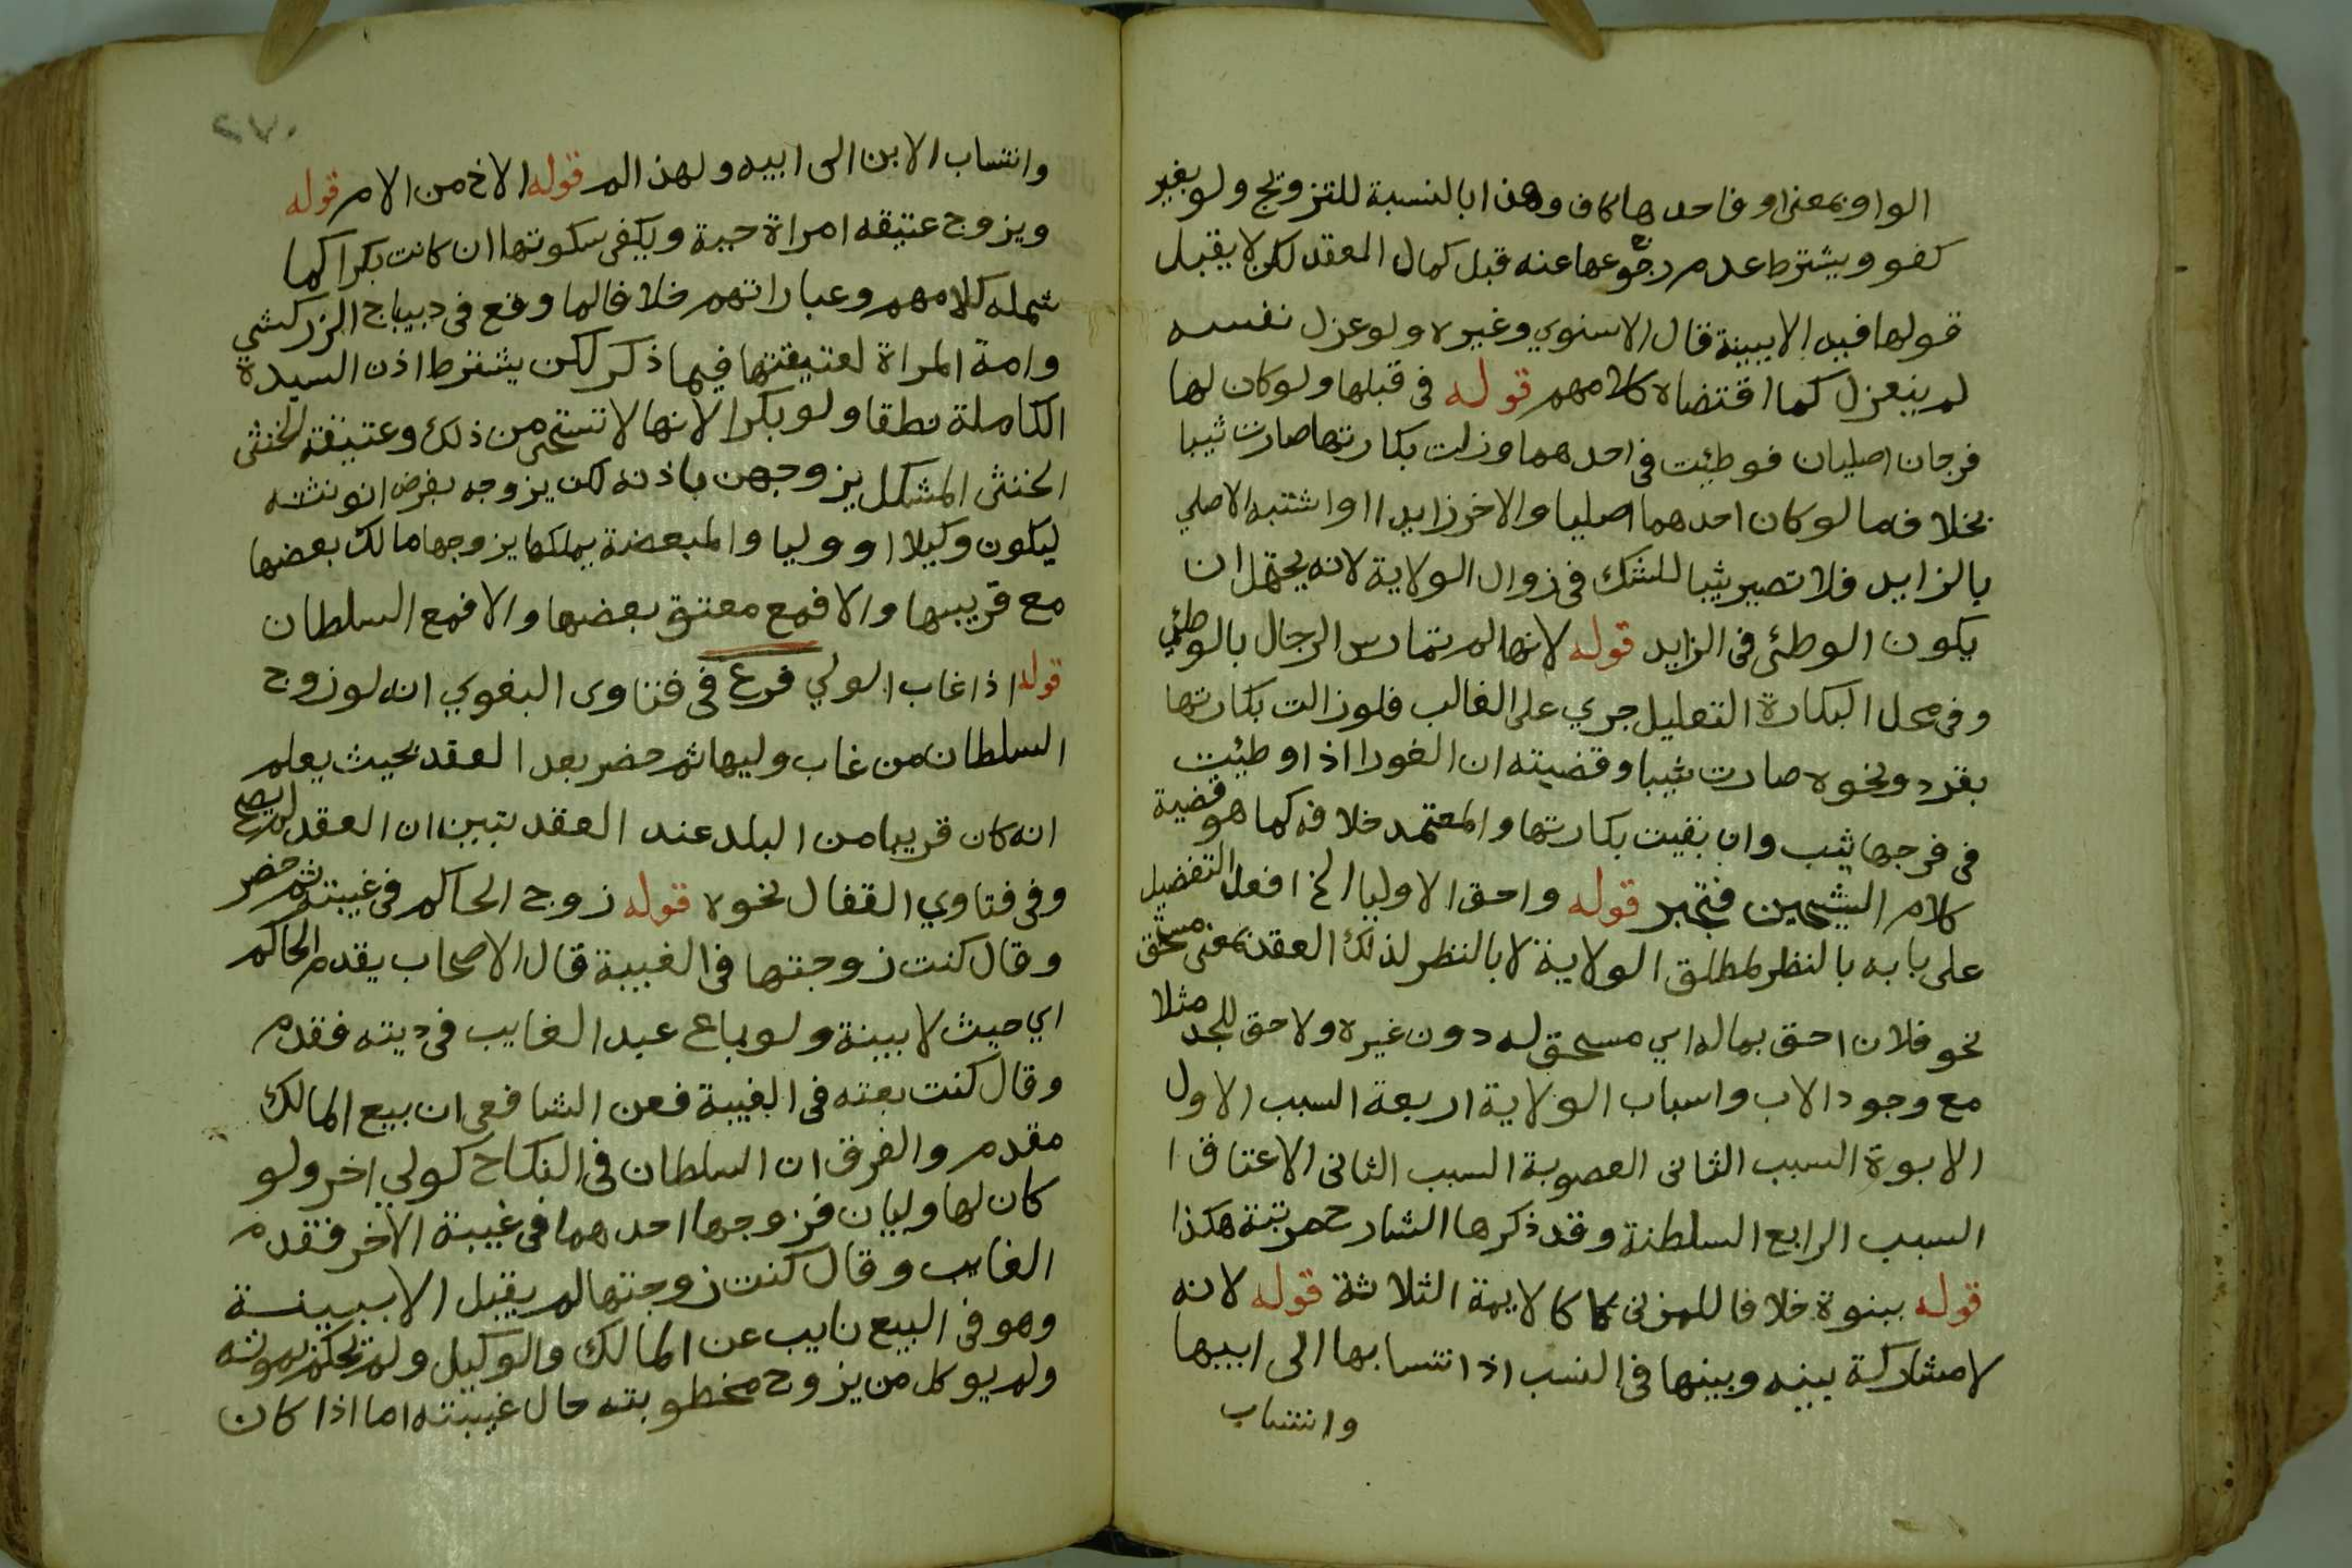 الواو بمعنى او فاحدها كاف وهذا بالنسبة للتزويج ولو بغير
كفو ويشترط عدم رجوعها عنه قبل كمال العقد لكن لا يقبل
قولها فيه الا ببينة قال الاسنوي وغيره ولو عزل نفسه
لم ينعزل كما اقتضاه كلامهم قوله في قبلها ولو كان لها
فرجان اصليان فوطئت في احدهما وزلت بكارتها صارت ثيبا
بخلاف ما لو كان احدهما اصليا والاخر زايدا او اشتبه الاصلي
بالزايد فلا تصير ثيبا للشك في زوال الولاية لانه يحتمل ان
يكون الوطئ في الزايد قوله لانها لم تمارس الرجال بالوطئ
وفي محل البكارة التعليل جري على الغالب فلو زالت بكارتها
بقرد ونحوه صارت ثيبا وقضيته ان الغورا اذا وطئت
في فرجها ثيب وان بقيت بكارتها والمعتمد خلافه كما هو قضية
كلام الشيخين فتخير قوله واحق الاوليا الخ افعل التفضيل
على بابه بالنظر لمطلق الولاية لا بالنظر لذلك العقد بمعنى مستحق
نحو فلان احق بماله اي مستحق له دون غيره ولا حق للجد مثلا
مع وجود الاب واسباب الولاية اربعة السبب الاول
الابوة السبب الثاني العصوبة السبب الثاني الاعتاق ا
السبب الرابع السلطنة وقد ذكرها الشارح مرتبة هكذا
قوله ببنوة خلافا للمزني كما كالايمة الثلاثة قوله لانه
لا مشاركة بينه وبينها في النسب اذ انتسابها الى ابيها
وانتساب
٢٧٠
وانتساب الابن الى ابيه ولهذا لم قوله الاخ من الام قوله
ويزوج عتيقه امراة حية ويكفي سكوتها ان كانت بكرا كما
شمله كلامهم وعباراتهم خلافا لما وقع في ديباج الزركشي
وامة المراة لعتيقتها فيما ذكر لكن يشترط اذن السيدة
الكاملة نطقا ولو بكرا لانها لا تستحي من ذلك وعتيقة الخنثى
الخنثى المشكل يزوجهن باذنه لكن يزوجه بفرض انوثته
ليكون وكيلا او وليا والمبعضة يملكها يزوجها مالك بعضها
مع قريبها والا فمع معتق بعضها والا فمع السلطان
قوله اذا غاب الولي فرع في فتاوى البغوي انه لو زوج
السلطان من غاب وليها ثم حضر بعد العقد بحيث يعلم
انه كان قريبا من البلد عند العقد تبين ان العقد لم يصح
وفي فتاوي القفال نحوه قوله زوج الحاكم في غيبته ثم حضر
وقال كنت زوجتها في الغيبة قال الاصحاب يقدم الحاكم
اي حيث لا بينة ولو باع عبد الغايب في ديته فقدم
وقال كنت بعته في الغيبة فعن الشافعي ان بيع المالك
مقدم والفرق ان السلطان في النكاح كولي اخر ولو
كان لها وليان فزوجها احدهما في غيبة الاخر فقدم
الغايب وقال كنت زوجتها لم يقبل الا ببينة
وهو في البيع نايب عن المالك والوكيل ولم يحكم بموته
ولم يوكل من يزوج مخطوبته حال غيبته اما اذا كان